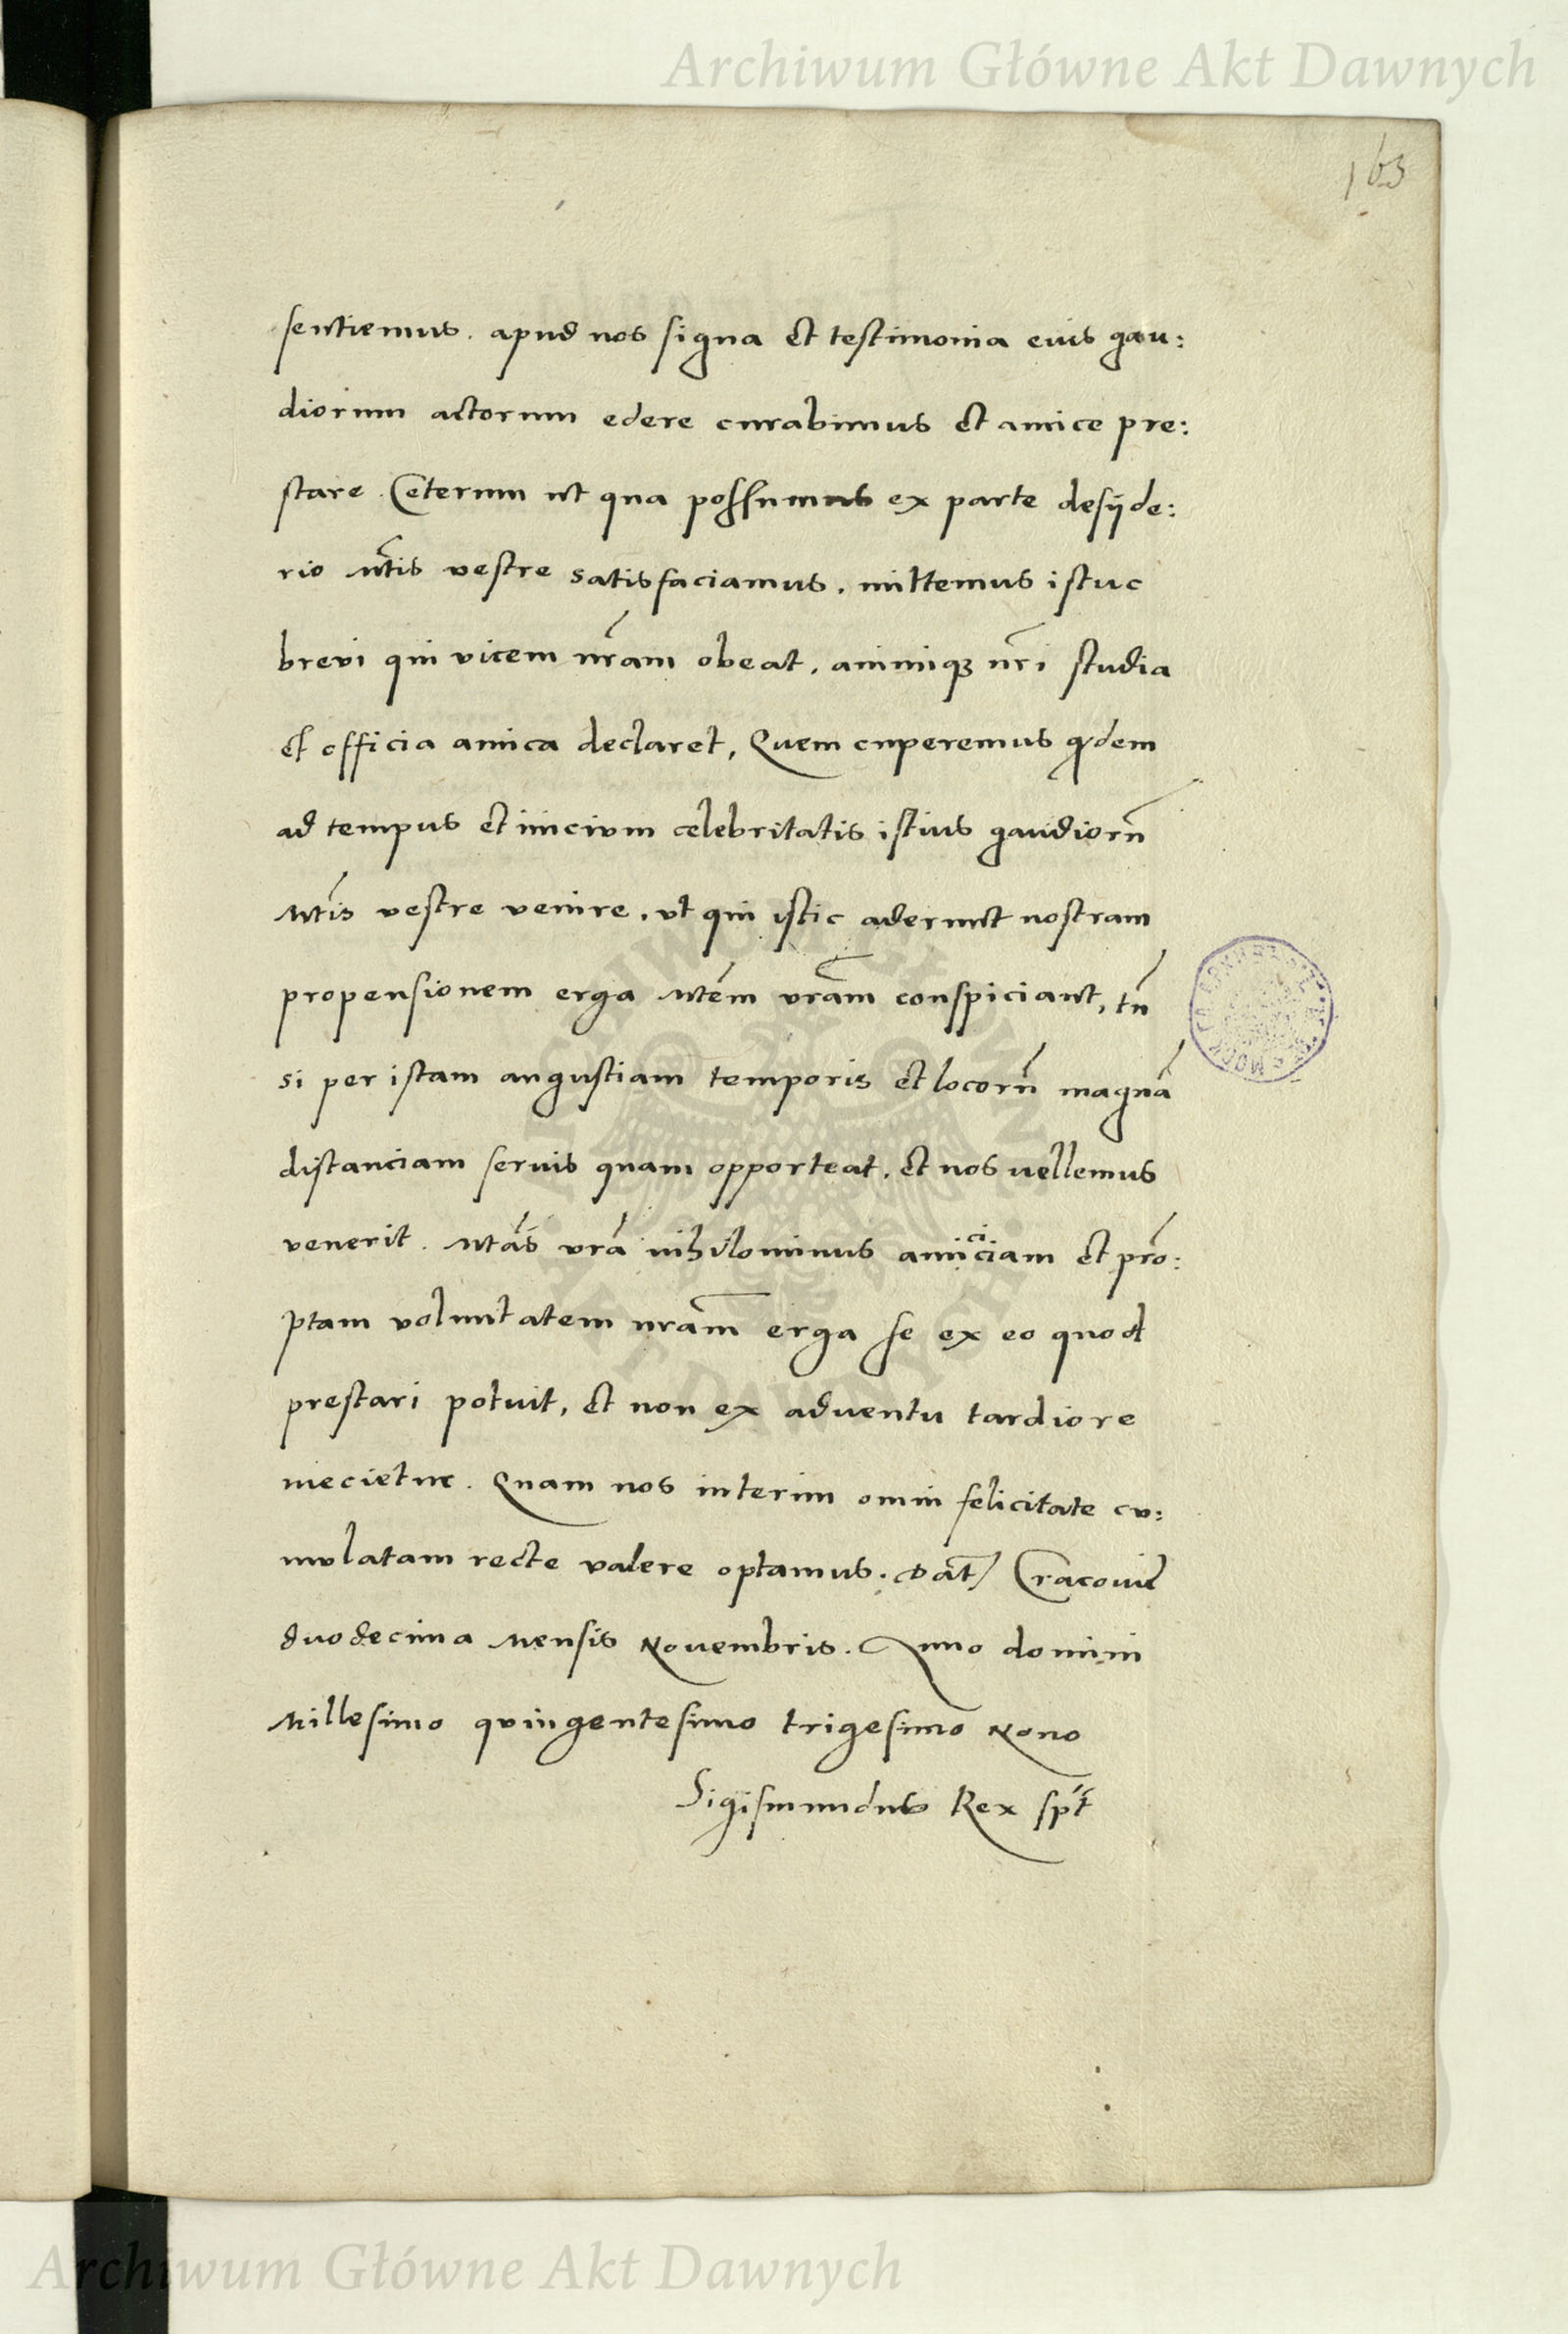 Archiwum Główne Akt Dawnych
163
sentiemus. apud nos signa et testimonia eius gau:
diorum actorum edere curabimus et amice pre:
stare. Ceterum ut qua possumus ex parte desyde:
rio Mtis vestre satisfaciamus. mittemus istuc
brevi qui vicem nram obeat, animiq3 nri studia
et officia amica declaret, Quem cuperemus qdem
ad tempus et inicium celebritatis istius gaudiorũ
Mtis vestre venire, vt qui istic aderunt nostram
propensionem erga Mtem vram conspiciant, tñ
si per istam angustiam temporis et locorũ magnã
distanciam serius quam opporteat, et nos vellemus
venerit. Mtas vra nihilominus amiciciam et pro:
ptam voluntatem nram erga se ex eo quod
prestari potuit, et non ex adventu tardiore
mecietur. Quam nos interim omni felicitate cu:
mulatam recte valere optamus. Dat Cracovie
duodecima Mensis Novembris. Anno domini
Millesimo quingentesimo trigesimo Nono
Sigismundus Rex spt
Archiwum Główne Akt Dawnych